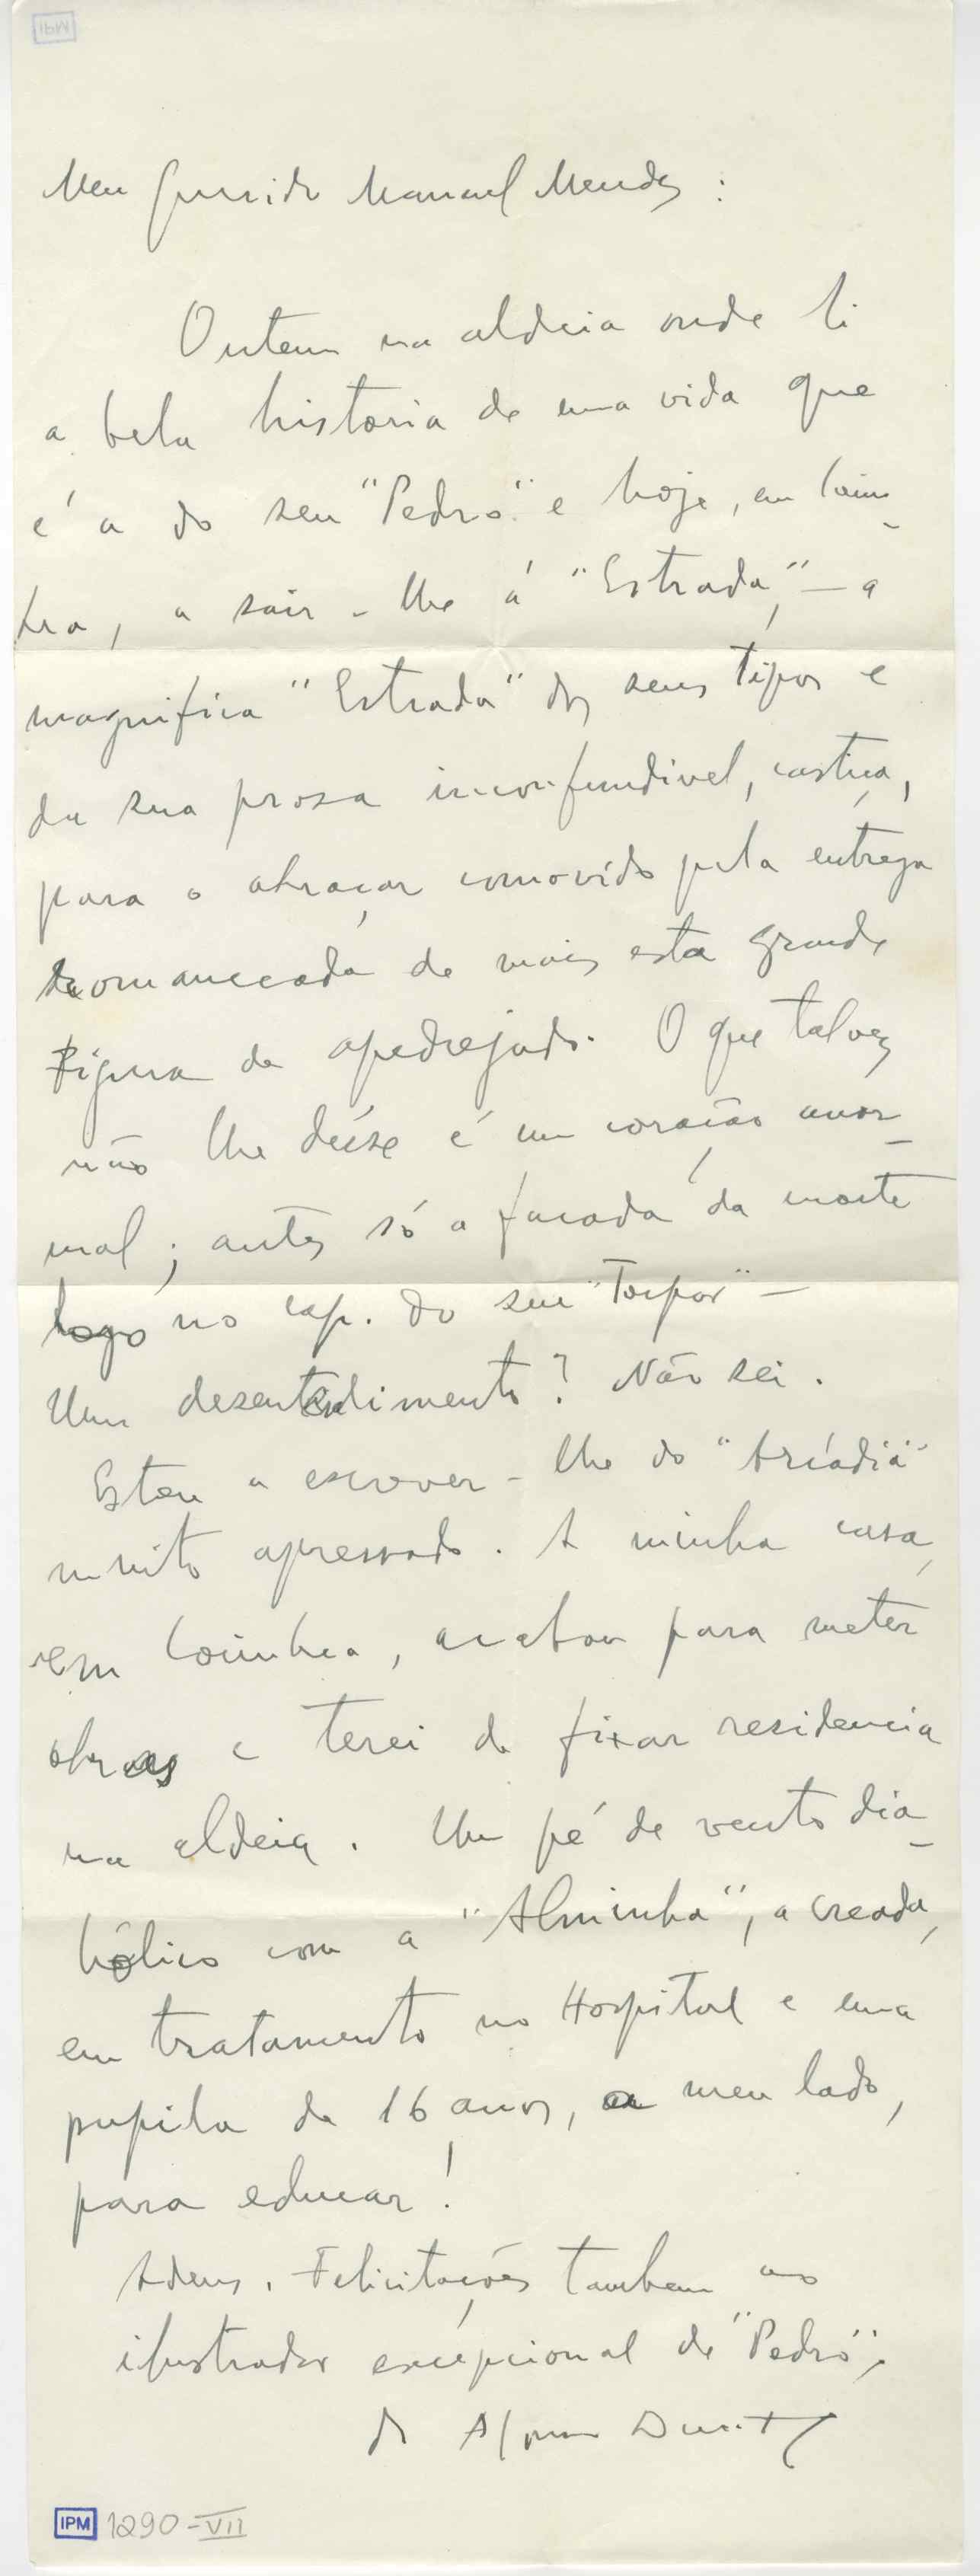 Meu Querido Manuel Mendes :
Ontem na aldeia onde li
a bela historia de uma vida que
é a do seu "Pedro" e hoje, em Coim-
bra, a sair-lhe á "Estrada", — a
magnifica "Estrada" dos seus tipos e
da sua prosa inconfundivel, castiça,
para o abraçar comovido pela entrega
romanceada de mais esta grande
Figura de apedrejado. O que talvez
não lhe désse é um coração anor-
mal ; antes só a facada da morte
logo no cap. do seu "Torpor" —
Um desentendimento ? Não sei .
Estou a escrever-lhe do "Arcádia"
muito apressado . A minha casa,
em Coimbra, acabou para meter
obras e terei de fixar residencia
na aldeia . Um pé de vento dia-
bólico com a "Alminha", a creada,
em tratamento no Hospital e uma
pupila de 16 anos, ao meu lado,
para educar !
Adeus . Felicitações tambem ao
ilustrador excepcional de "Pedro",
do Afonso Duarte
IPM 1290-VII
IPM